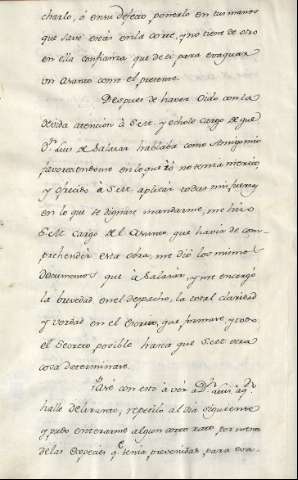 charlo, ó en su defecto ponerlo en tus manos
que save estas en la corte, y no tiene de otro
en ella confianza, que de ti para evacuar
un asunto como el presente.
Despues de haver Oido con la
devida atención à S.M. y echole cargo de que
Dn. Luis de Salazar hablaba como Amigo mio
favoreciendome en lo que yo no tenia merito,
y ofrecido à S.M. aplicar todas mis fuerzas
en lo que se dignare mandarme, me hizo
S.M. cargo del Asunto que havia de com-
prehender esta obra, me dió los mismos
Documentos que à Salazar, y me encargó
la brevedad en el despacho, la total claridad
y verdad en el Escrito, que formare, y todo
el Secreto posible hasta que S.M. otra
cosa determinare.
Pasé con esto à vér à Dn. Luis, à qn.
halle delirante, repetilo al dia siguiente
y pude enterarme algun corto rato por medio
de las Especies qe. tenia prevenidas para eva-